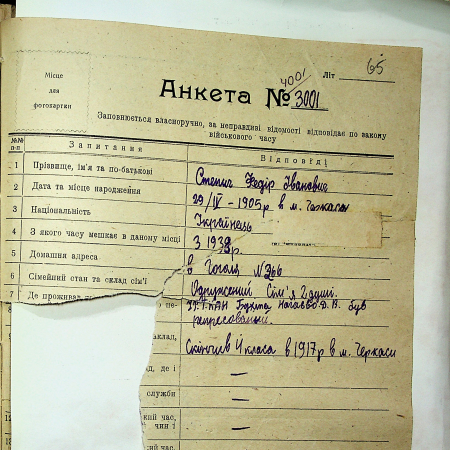 65
Літ
Місце
для
фотокартки
4001
Анкета № 3001
Заповнюється власноручно, за неправдиві відомості відповідає по закону
військового часу
№№
п-п
Запитання
Відповіді
1 Прізвище, ім'я та по-батькові
Степич Федір Іванович
2 Дата та місце народження
29/IV - 1905 р в м. Черкаси
3 Національність
Українець
4 З якого часу мешкає в даному місці
З 1938р.
5 Домашня адреса
в Гоголя № 266
6 Сімейний стан та склад сім'ї
Одружений Сім'я 2 душі.
7 Де проживал
8
був
репресований.
9
Скінчив 4 класа в 1917р в м. Черкаси
д, де і
—
служби
—
кий час,
чин і
—
12
13
ий час,